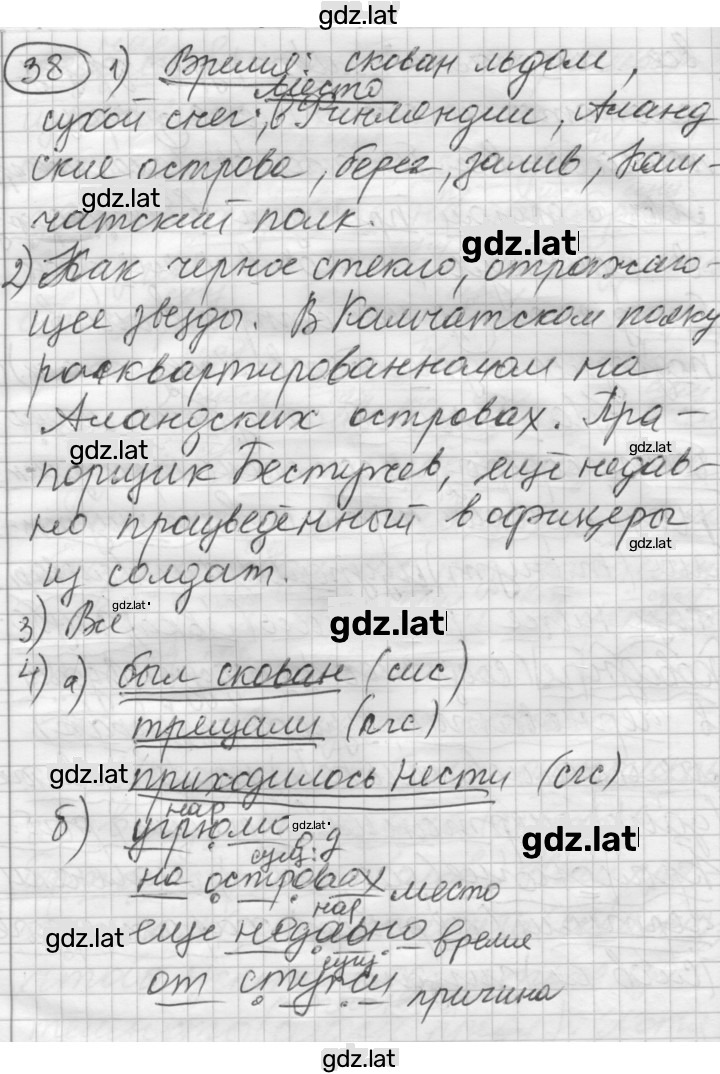 gdz.lat
38 1) Время: скован льдом,
место
сухой снег; в Финляндии, Аланд
ские острова, берег, залив, Кам-
gdz.lat
чатский полк.
gdz.lat
2) Как черное стекло, отражаю-
щее звезды. В Камчатском полку
расквартированном на
Аландских островах. Пра-
gdz.lat
gdz.lat
порщик Бестужев, ещё недав-
но працведённый в офицеры
gdz.lat
из солдат.
gdz.lat
3) Все.
gdz.lat
4) а) был скован (сис)
трещали (пгс)
gdz.lat
приходилось нести (сгс)
нар
б) угрюмо о. д
gdz.lat
gdz.lat
сущ.
на островах место
нар
gdz.lat
еще недавно время
сущ.
от стужи причина
gdz.lat